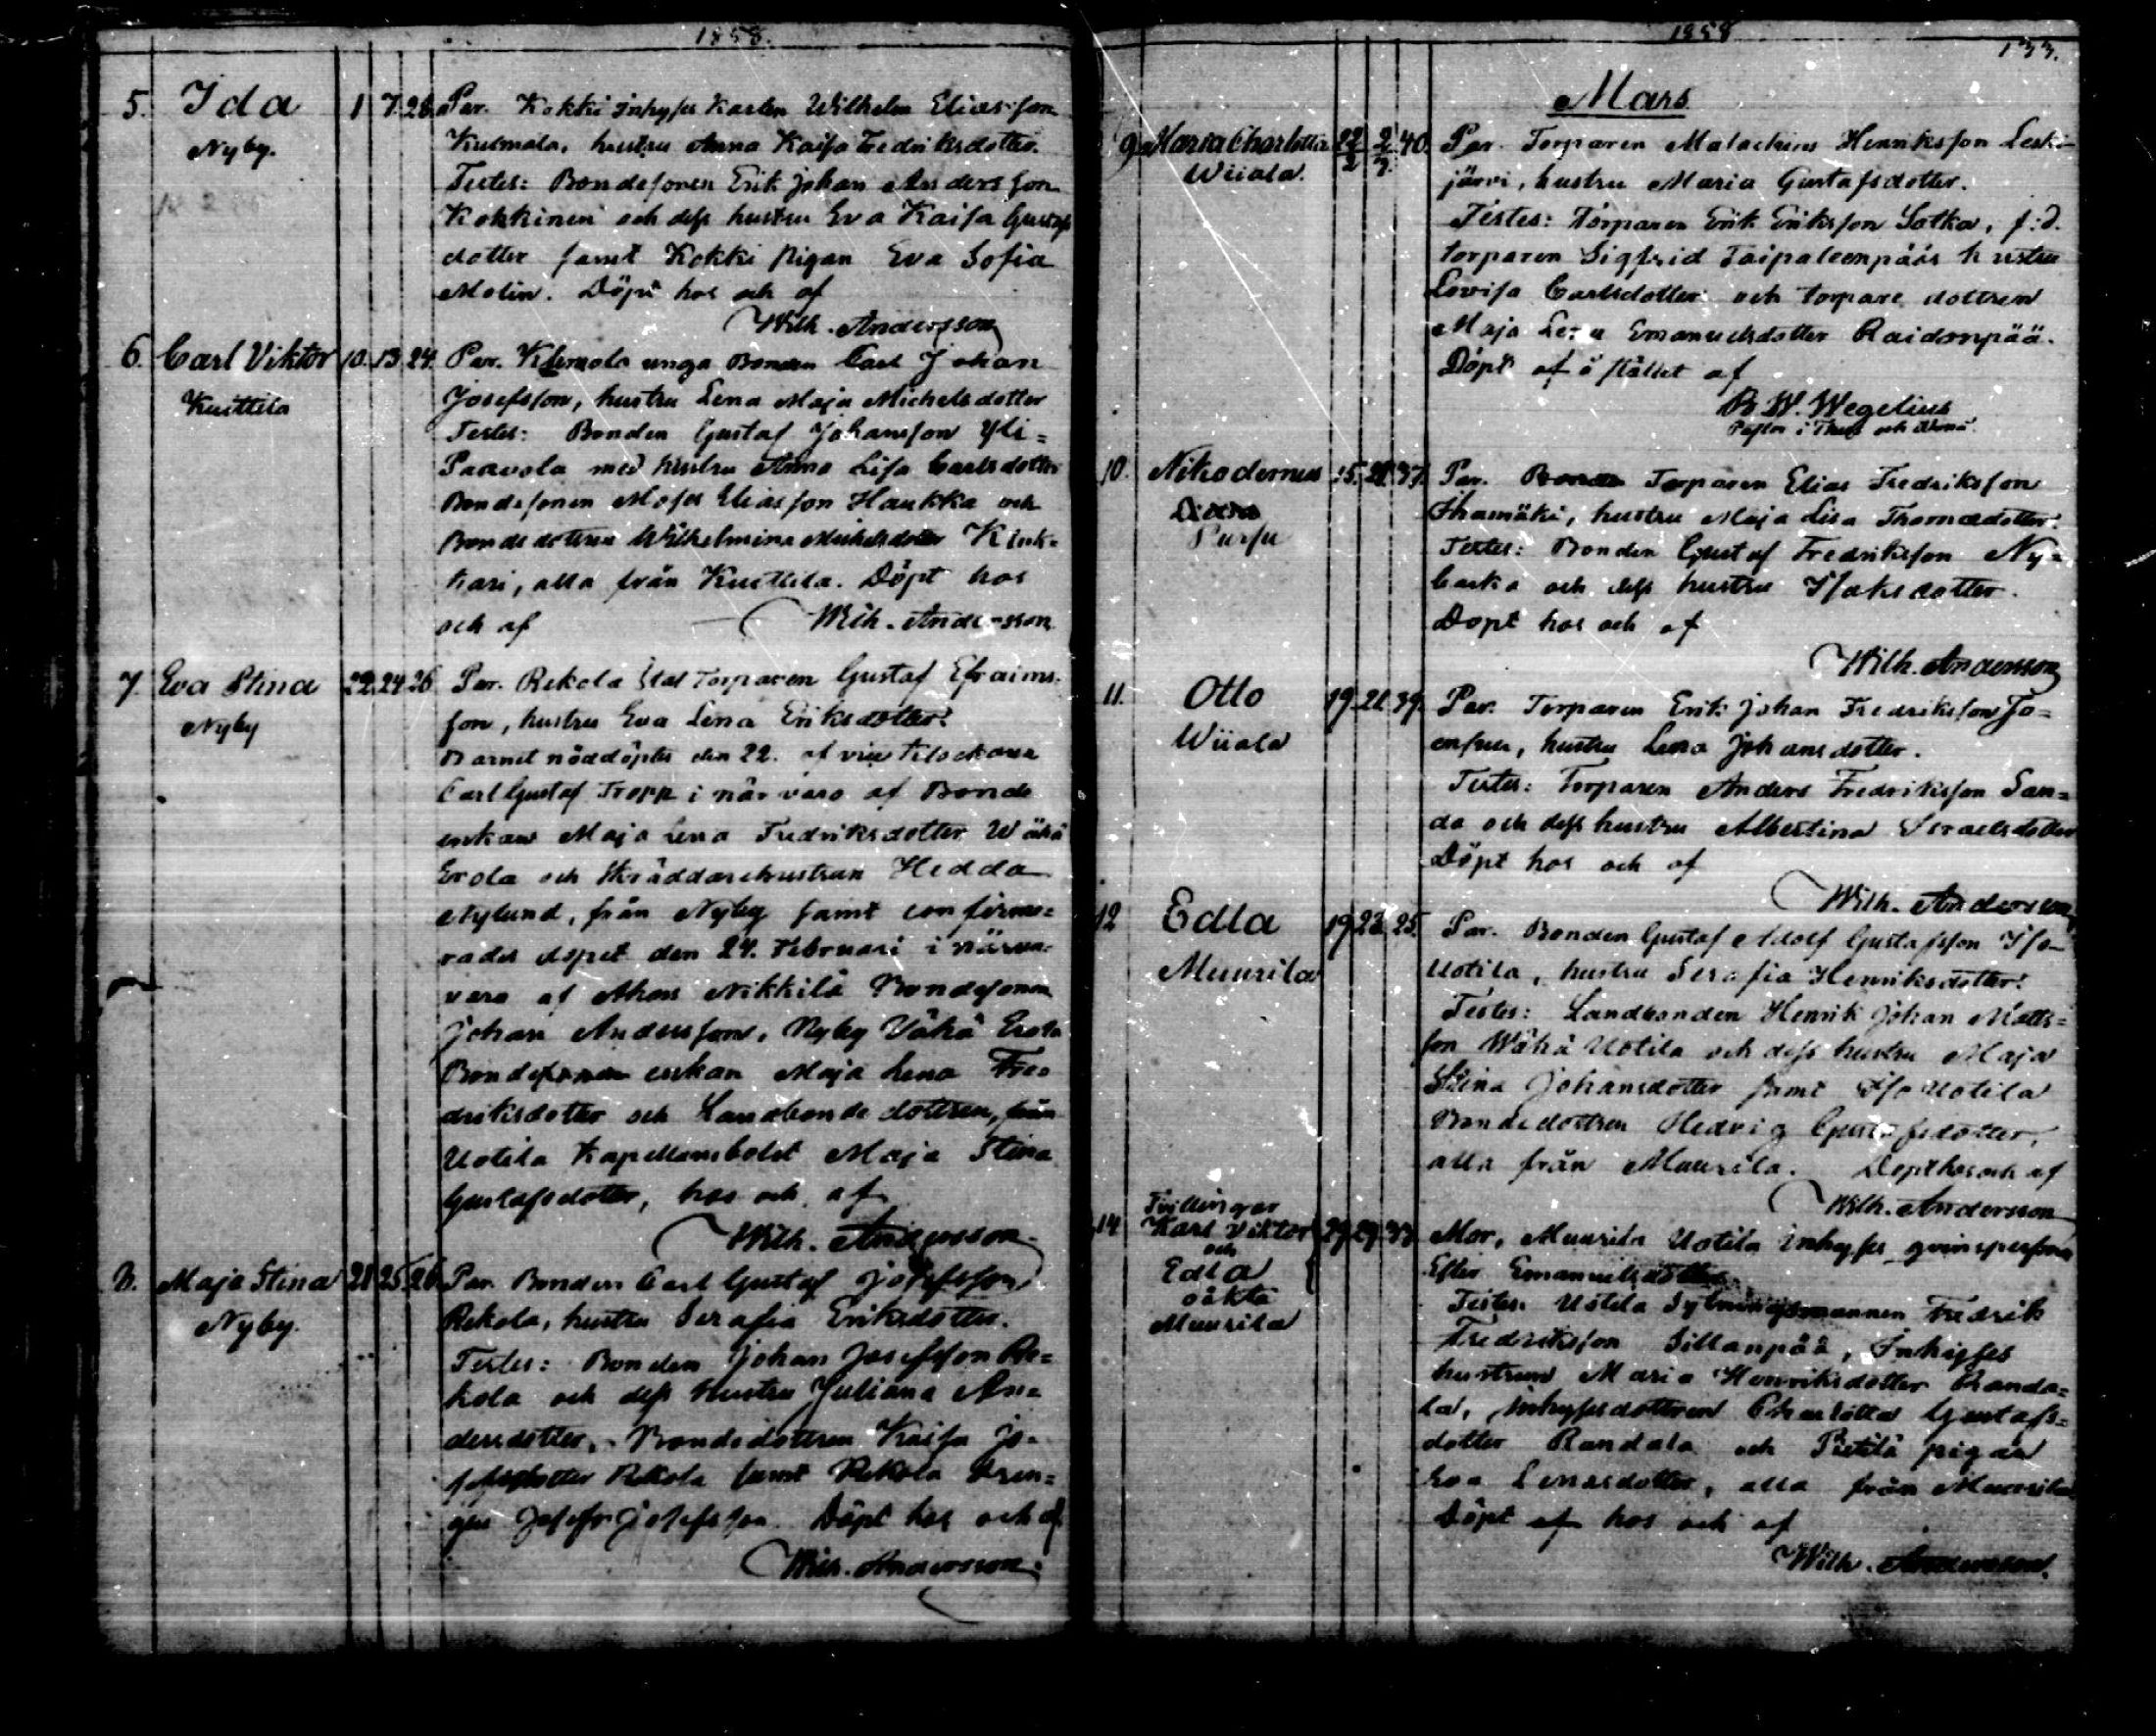 1858.
5. Ida 1 7. 28. Par. Kokki inhyses Karlen Wilhelm Eliasson
Nyby. Kulmala, hustru Anna Kaisa Fredriksdotter.
Testes: Bondesonen Erik Johan Andersson
Kokkinen och dess hustru Eva Kaisa Gustafs
dotter samt Kokki pigan Eva Sofia
Molin. Döpt hos och af
Wilh. Andersson
6. Carl Viktor 10. 13. 24. Par. unga Bonden Carl Johan
Kusttila Josefsson, hustru Lena Maja Michelsdotter
Testes: Bonden Gustaf Johansson Yli=
Paavola med hustru Anna Lisa Carlsdotter
Bondesonen Moses Eliasson Haukka och
Bondedottren Wilhelmina Michelsdotter Kink=
kari, alla från Kusttila. Döpt hos
och af Wilh. Andersson
7. Eva Stina 22. 24. 26 Par. Rekola Torparen Gustaf Efraims-
Nyby son, hustru Eva Lena Eriksdotter.
Barnet nöddöptes den 22. af vice klockaren
Carl Gustaf Tropp i när varo af Bonde
enkan Maja Lena Fredriksdotter Wähä
Erola och Skräddarehustrun Hedda
Nylund, från Nyby samt confirme=
rades dopet den 24. Februari i närva=
varo af Ahois Nikkilä Bondesonen
Johan Andersson, Nyby Vähä Erola
enkan Maja Lena Fre=
driksdotter och Landbonde dottren, från
Uotila Kapellansbolet Maja Stina
Gustafsdotter, hos och af
Wilh. Andersson.
8. Maja Stina 21 25. 26 Par. Bonden Carl Gustaf Josefsson
Nyby. Rekola, hustru Serafia Eriksdotter.
Testes: Bonden Johan Josefsson Re=
kola och dess hustru Juliana An=
dersdotter, Bondedottren Kaisa Jo-
sefsdotter Rekola samt Rekola dren=
gen Josef Josefsson. Döpt hos och af
Wilh. Andersson.
1858
133.
Mars
9. Maria Charlotta 22/2 2/3. 40. Par. Torparen Malachias Henriksson Leski-
Wiiala. järvi, hustru Maria Gustafsdotter.
Testes: Torparen Erik Eriksson Sotka, f:d.
torparen Sigfrid Taipaleenpääs hustru
Lovisa Carlsdotter och torpare dottren
Maja Lena Emanuelsdotter Raidonpää.
Döpt af å stället af
B. W. Wegelius
Pastor i
10. Nikodemus 15. 21. 37. Par. Torparen Elias Fredriksson
Pursu Ihamäki, hustru Maja Lisa Thomasdotter.
Testes: Bonden Gustaf Fredriksson Ny=
backa och dess hustru Isaksdotter.
Döpt hos och af
Wilh. Andersson
11. Otto 19. 21. 39. Par. Torparen Erik Johan Fredriksson Jo=
Wiiala ensuu, hustru Lena Johansdotter.
Testes: Torparen Anders Fredriksson San=
da och dess hustru Albertina Israelsdotter
Döpt hos och af
Wilh. Andersson
12 Edla 19. 23. 25. Par. Bonden Gustaf Adolf Gustafsson Iso
Muurila Uotila, hustru Serafia Henriksdotter.
Testes: Landbonden Henrik Johan Matts=
son Wähä Uotila och dess hustru Maja
Stina Johansdotter samt Iso Uotila
Bondedottren Hedvig Gustafsdotter,
alla från Muurila. Döpt hos och af
Wilh. Andersson
Tvillingar
14 Karl Viktor 29. 29. 37 Mor, Muurila Uotila inhyses qvinspersonen
och
Edla Ester Emanuelsdotter
oäkta Testes: Uotila Sytningsmannen Fredrik
Muurila Fredriksson Sillanpää, Inhyses
hustrun Maria Henriksdotter Randa=
la, Inhysesdottren Charlotta Gustafs=
dotter Randala och Pietilä pigan
Eva dotter, alla från Muurila
Döpt af hos och af
Wilh. Andersson.